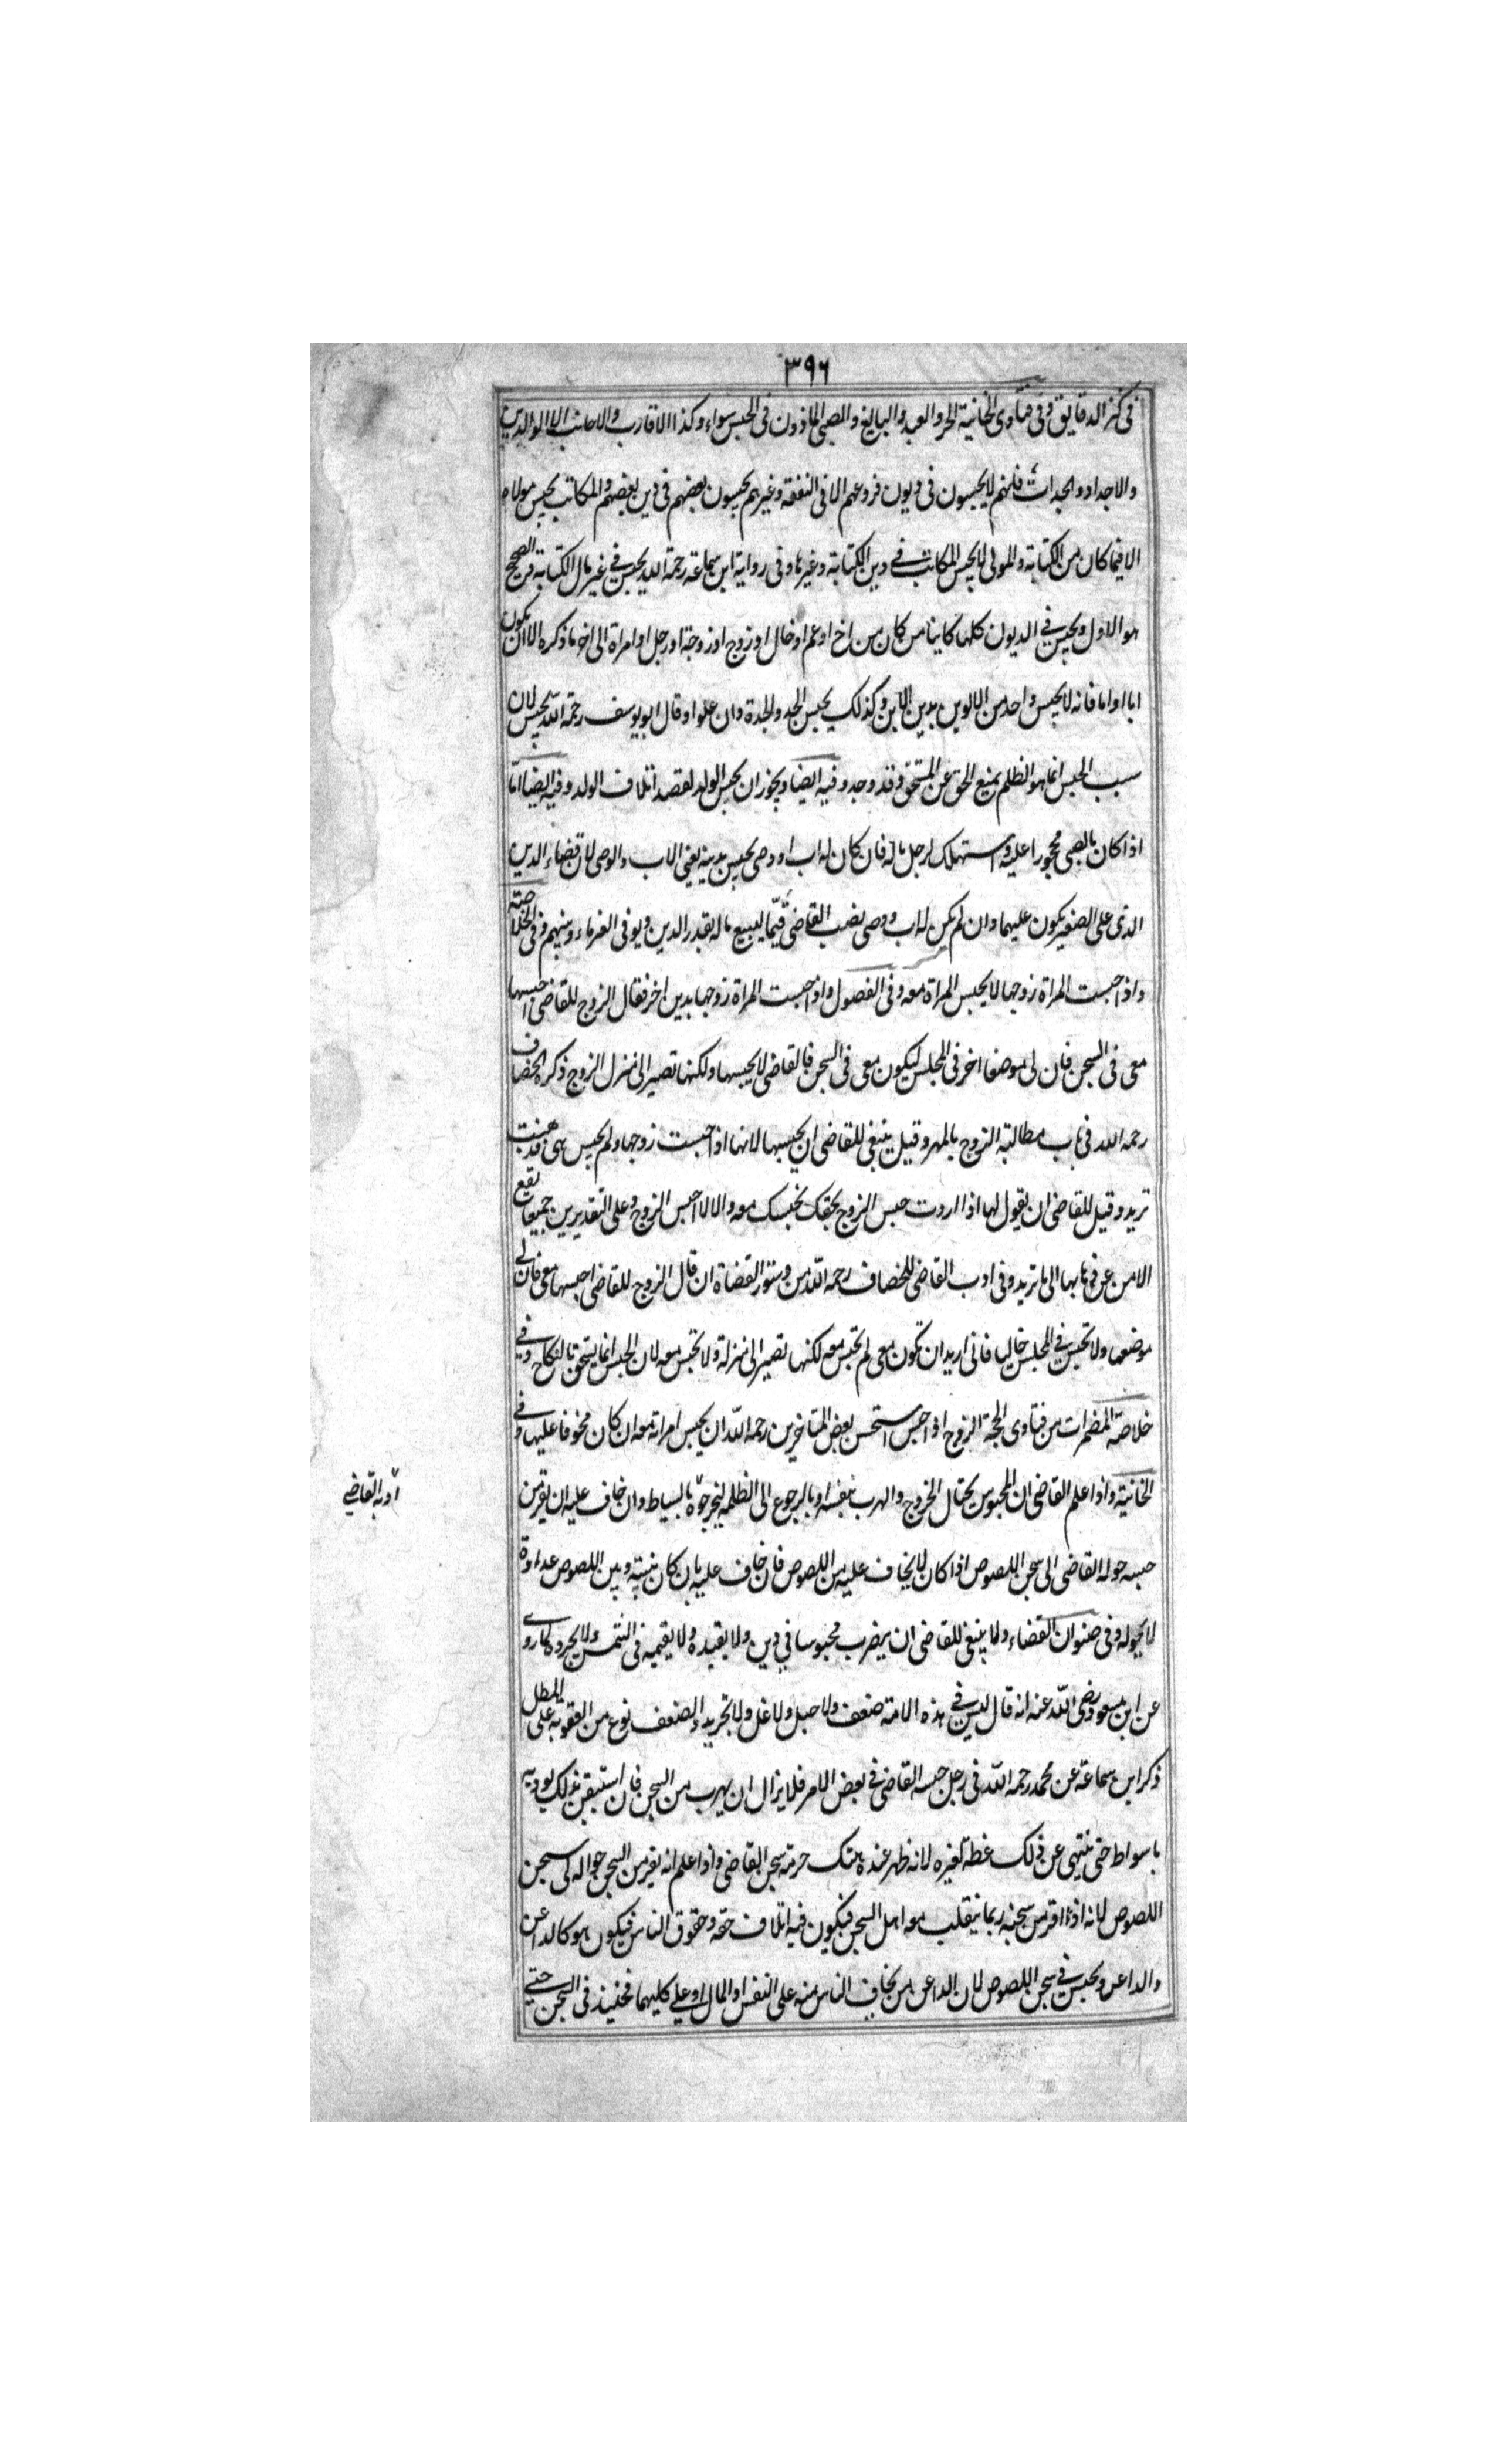 ٣٩٦
فى كنز الدقايق وفى فتاوى الخانية الحر والعبد والبالغ والصبى الماذون فى الحبس سواء وكذا الاقارب والاجانب الا الوالدين
والاجداد والجدات فانهم لا يحبسون فى ديون فروعهم الا فى النفقة وغيرهم يحبسون بعضهم فى دين بعضهم والمكاتب يحبس مولاه
الا فيما كان من الكتابة والمولى لا يحبس المكاتب فى دين الكتابة وغيرها وفى رواية ابن سماعة رحمة الله يحبس فى غير مال الكتابة والصحيح
هو الاول ويحبس فى الديون كلها كاينا من كان من اخ او عم او خال او زوج او زوجة او رجل او امراة الى اخر ما ذكره الا ان يكون
ابا او اما فانه لا يحبس واحد من الابوين بدين الابن وكذلك يحبس الجد والجدة وان علوا وقال ابو يوسف رحمة الله يحبس لان
سبب الحبس انما هو الظلم بمنع الحق عن المستحق وقد وجد وفيه ايضا ويجوز ان يحبس الولد لقصد اتلاف الولد وفيه ايضا اما
اذا كان بالصبى محجورا عليه واستهلك لرجل ماله فان كان له اب او وصى يحبس بدينه يعنى الاب والوصى لان قضاء الدين
الذى على الصغير يكون عليهما وان لم يكن له اب ووصى نصب القاضى قيما ليبيع ماله بقدر الدين ويوفى الغرماء دينهم وفى الخلاصة
واذا حبست المراة زوجها لا يحبس المراة معه وفى الفصول واذا حبست المراة زوجها بدين اخر فقال الزوج للقاضى احبسها
معى فى السجن فان لى موضعا اخر فى المجلس ليكون معى فى السجن فالقاضى لا يحبسها ولكنها تصير الى منزل الزوج ذكره الخصاف
رحمه الله فى باب مطالبة الزوج بالمهر وقيل ينبغى للقاضى ان يحبسها لانها اذا حبست زوجها ولم يحبس هى فذهبت
تريد وقيل للقاضى ان يقول لها اذا اردت حبس الزوج بحقك نحبسك معه والا لا احبس الزوج وعلى التقديرين جميعا يقع
الامن عن ذهابها الى ما تريد وفى ادب القاضى للخصاف رحمه الله من دستور القضاة ان قال الزوج للقاضى احبسها معى فان لى
موضعها ولا تحبس فى المجلس خاليا فانى اريد ان تكون معى لم تحبس معه لكنها تصير الى منزلة ولا تحبس معه لان الحبس انما يستحق بالنكاح وفى
خلاصة المضمرات من فتاوى الحجة الزوج اذا حبس استحسن بعض المتاخرين رحمه الله ان يحبس امراته معه ان كان مخوفا عليها وفى
الخانية واذا علم القاضى ان المحبوس يحتال الخروج والهرب بنفسه او بالرجوع الى الظلمة ليخرجوه بالسياط وان خاف عليه ان يفر من
حبسه حوله القاضى الى سجن اللصوص اذا كان لا يخاف عليه من اللصوص فان خاف عليه بان كان بينه وبين اللصوص عداوة
لا يحوله وفى صنوان القضاء ولا ينبغى للقاضى ان يضرب محبوسا فى دين ولا يقيده ولا يقيمه فى الشمس ولا يجرده لما روى
عن ابن مسعود رضى الله عنه انه قال ليس فى هذه الامة صنعف ولا حبل ولا غل ولا تجريد والصنعف نوع من العقوبة على المطل
ذكر ابن سماعة عن محمد رحمه الله فى رجل حبسه القاضى فى بعض الامر فلا يزال ان يهرب من السجن فان استيقن بذلك يوذيه
باسواط حتى ينتهى عن ذلك عظة لغيره لانه ظهر عنده هتك حرمة سجن القاضى واذا علم انه يفر من السجن حواله الى سجن
اللصوص لانه اذا فر من سجنه ربما ينقلب معه اهل السجن فيكون فيه اتلاف حقه وحقوق الناس فيكون هو كالداعن
والداعن ويحبس فى سجن اللصوص لان الداعن من يخاف الناس منه على النفس او المال او على كليهما فحينئذ فى السجن حتى
ادب القاضى